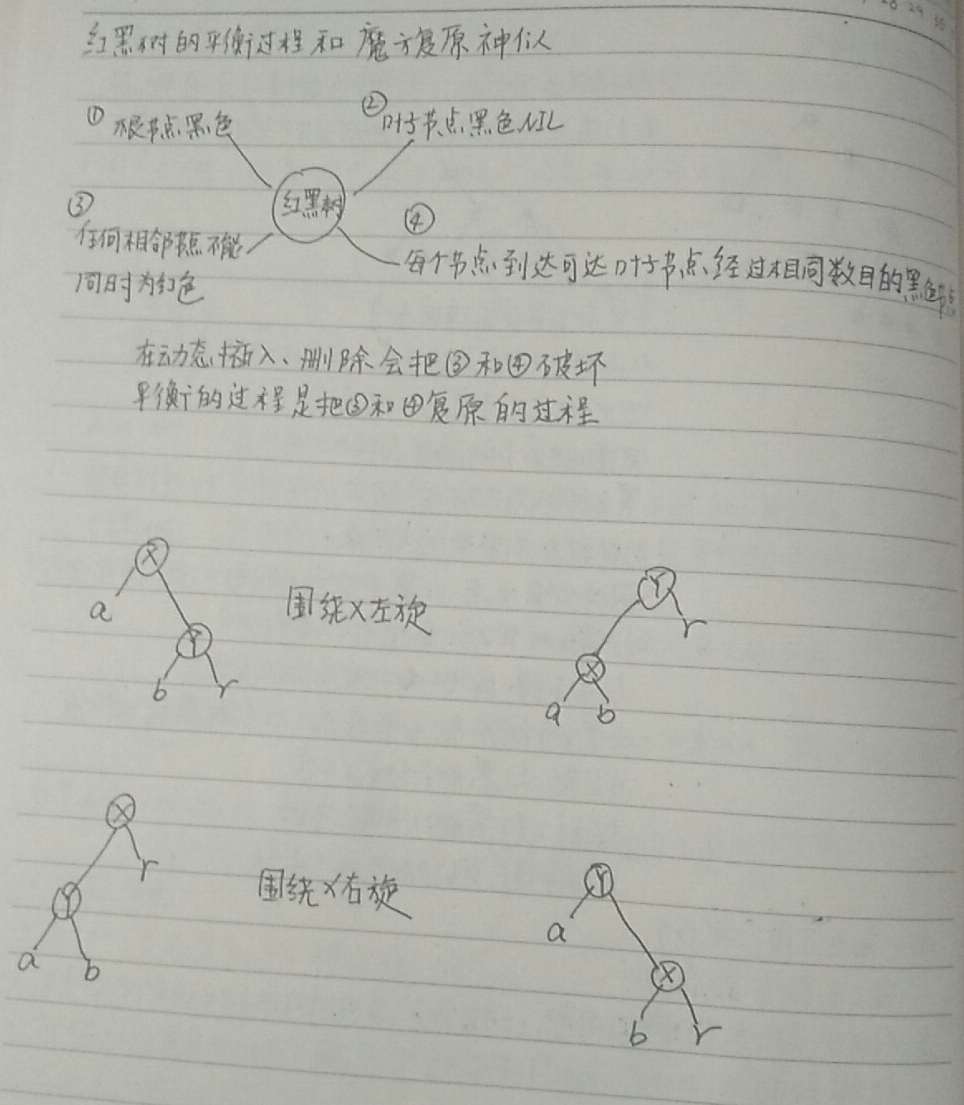 28 29 30
红黑树的平衡过程和魔方复原神似
① 根节点黑色
② 叶子节点黑色NIL
红黑树
③
任何相邻节点不能
同时为红色
④
每个节点到达可达叶子节点经过相同数目的黑色节点
在动态插入、删除会把③和④破坏
平衡的过程是把③和④复原的过程
X
a
Y
b r
围绕X左旋
Y
r
X
a b
X
r
Y
a b
围绕X右旋
Y
a
X
b r